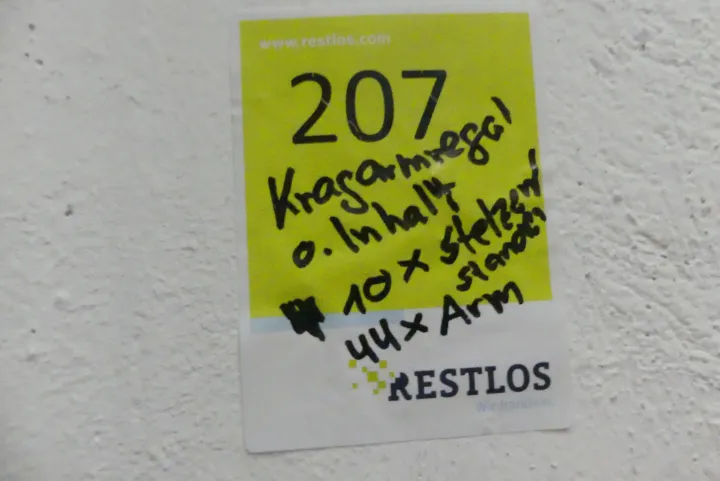 www.restlos.com
207
Kragarmregal
o. Inhalt
10 x Stelzen
44 x Arm
RESTLOS